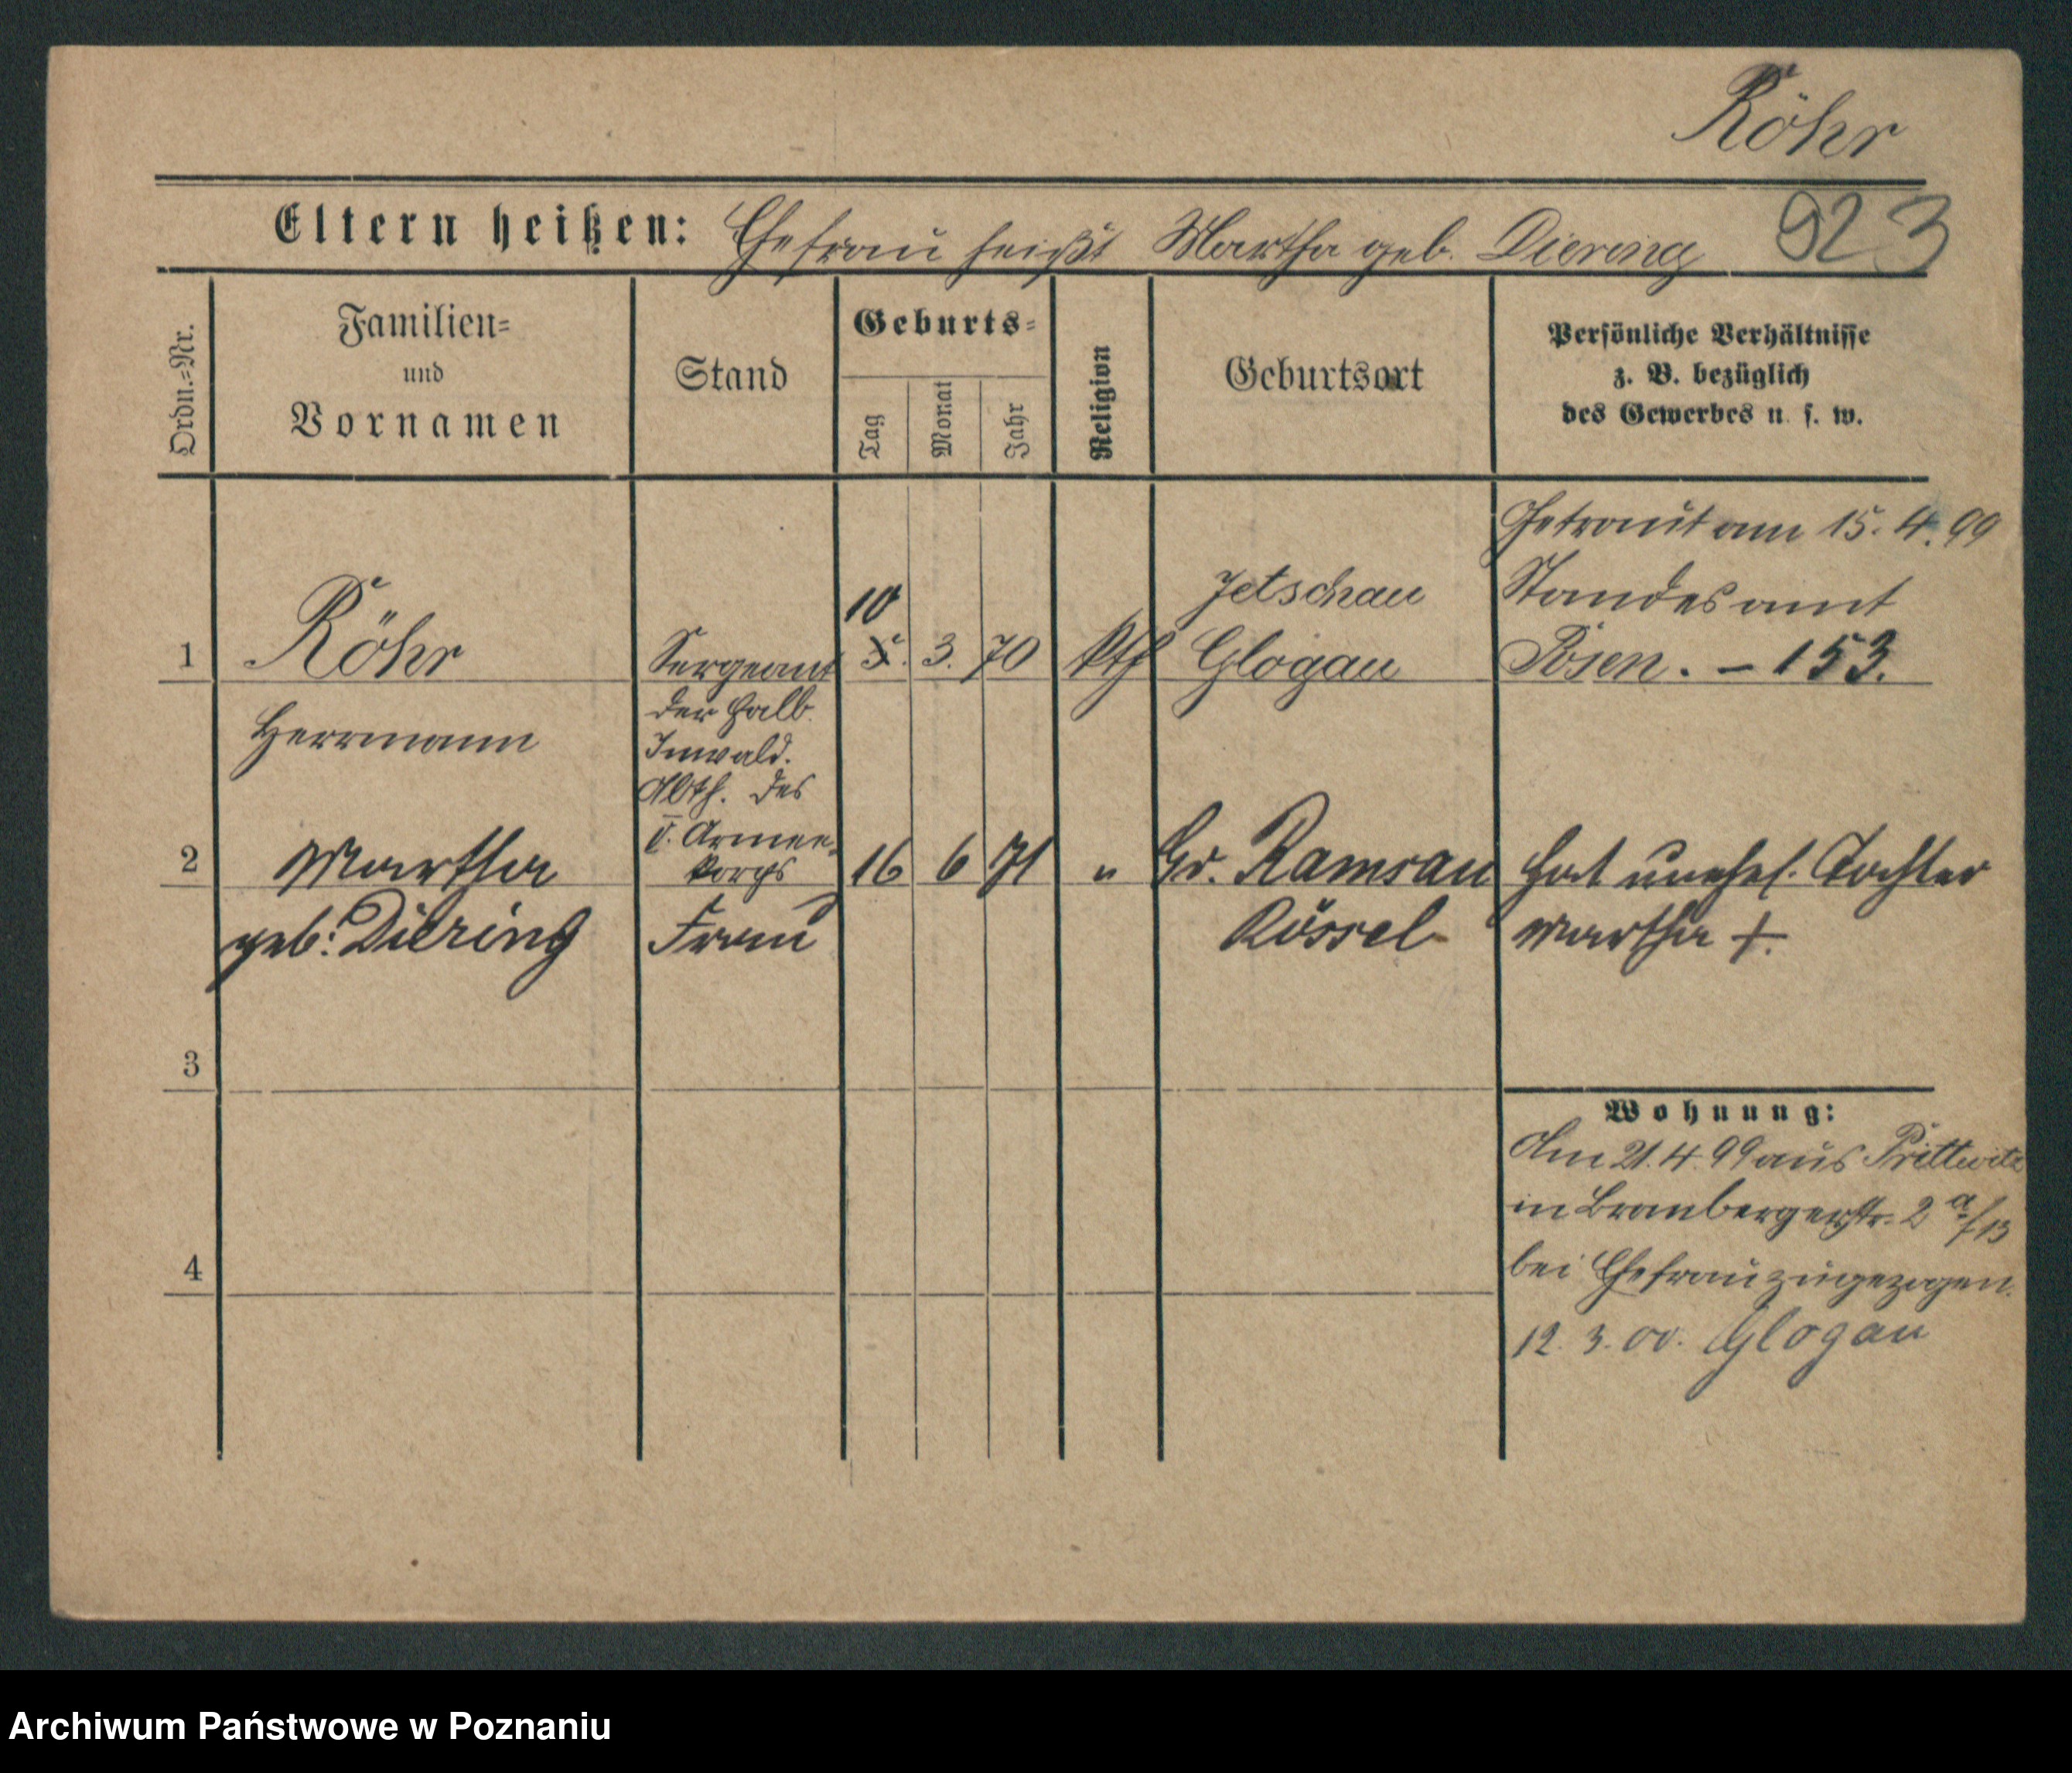 Röhr
Eltern heißen: Ehefrau heißt Martha geb. Diering 923
Ordn.=Nr.
Familien=
und
Vornamen
Stand
Geburts=
Tag
Monat
Jahr
Religion
Geburtsort
Persönliche Verhältnisse
z. B. bezüglich
des Gewerbes u. s. w.
1
Röhr
Herrmann
Sergeant
der Halb.
Invalid.
Abth. des
V. Armee-
korps
10
5. 3. 70
kth
Jetschau
Glogau
Getraut am 15. 4. 99
Standesamt
Posen. – 153.
2
Martha
geb. Diering
Frau
16 6 71
"
Gr. Ramsau
Rössel
Hat unehel. Tochter
Martha +.
3
4
Wohnung:
Am 21. 4. 99 aus Prittwitz
in Brombergerstr. 2 a
bei Ehefrau zugezogen.
12. 3. 00. Glogau
Archiwum Państwowe w Poznaniu